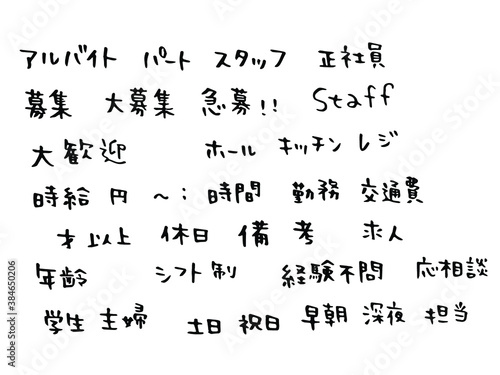 アルバイト パート スタッフ 正社員
募集 大募集 急募!! Staff
大歓迎 ホール キッチン レジ
時給 円 ~ : 時間 勤務 交通費
才 以上 休日 備考 求人
年齢 シフト制 経験不問 応相談
学生 主婦 土日 祝日 早朝 深夜 担当
Adobe Stock | #384650206